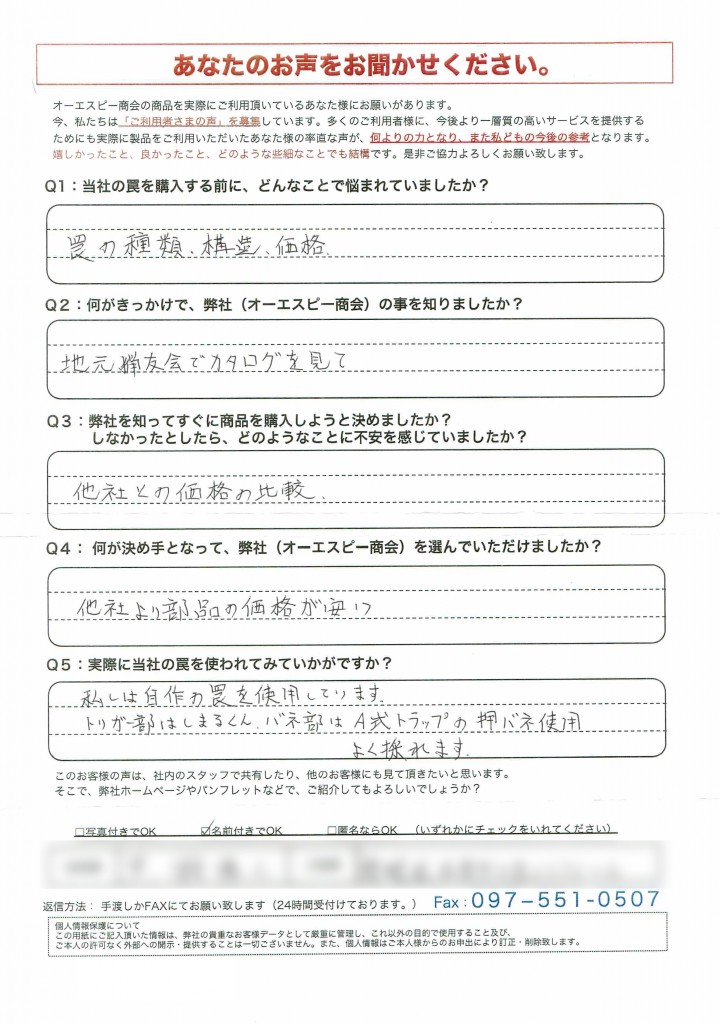 あなたのお声をお聞かせください。
オーエスピー商会の商品を実際にご利用頂いているあなた様にお願いがあります。
今、私たちは「ご利用者さまの声」を募集しています。多くのご利用者様に、今後より一層質の高いサービスを提供する
ためにも実際に製品をご利用いただいたあなた様の率直な声が、何よりの力となり、また私どもの今後の参考となります。
嬉しかったこと、良かったこと、どのような些細なことでも結構です。是非ご協力よろしくお願い致します。
Q1：当社の罠を購入する前に、どんなことで悩まれていましたか？
罠の種類、構造、価格
Q2：何がきっかけで、弊社（オーエスピー商会）の事を知りましたか？
地元猟友会でカタログを見て
Q3：弊社を知ってすぐに商品を購入しようと決めましたか？
しなかったとしたら、どのようなことに不安を感じていましたか？
他社との価格の比較、
Q4： 何が決め手となって、弊社（オーエスピー商会）を選んでいただけましたか？
他社より部品の価格が安い
Q5：実際に当社の罠を使われてみていかがですか？
私しは自作の罠を使用しています。
トリガー部はしまるくん、バネ部はA式トラップの押バネ使用
よく採れます。
このお客様の声は、社内のスタッフで共有したり、他のお客様にも見て頂きたいと思います。
そこで、弊社ホームページやパンフレットなどで、ご紹介してもよろしいでしょうか？
□写真付きでOK ☑名前付きでOK □匿名ならOK （いずれかにチェックをいれてください）
返信方法： 手渡しかFAXにてお願い致します（24時間受付ております。） Fax：097-551-0507
個人情報保護について
この用紙にご記入頂いた情報は、弊社の貴重なお客様データとして厳重に管理し、これ以外の目的で使用すること及び、
ご本人の許可なく外部への開示・提供することは一切ございません。また、個人情報はご本人様からのお申出により訂正・削除致します。